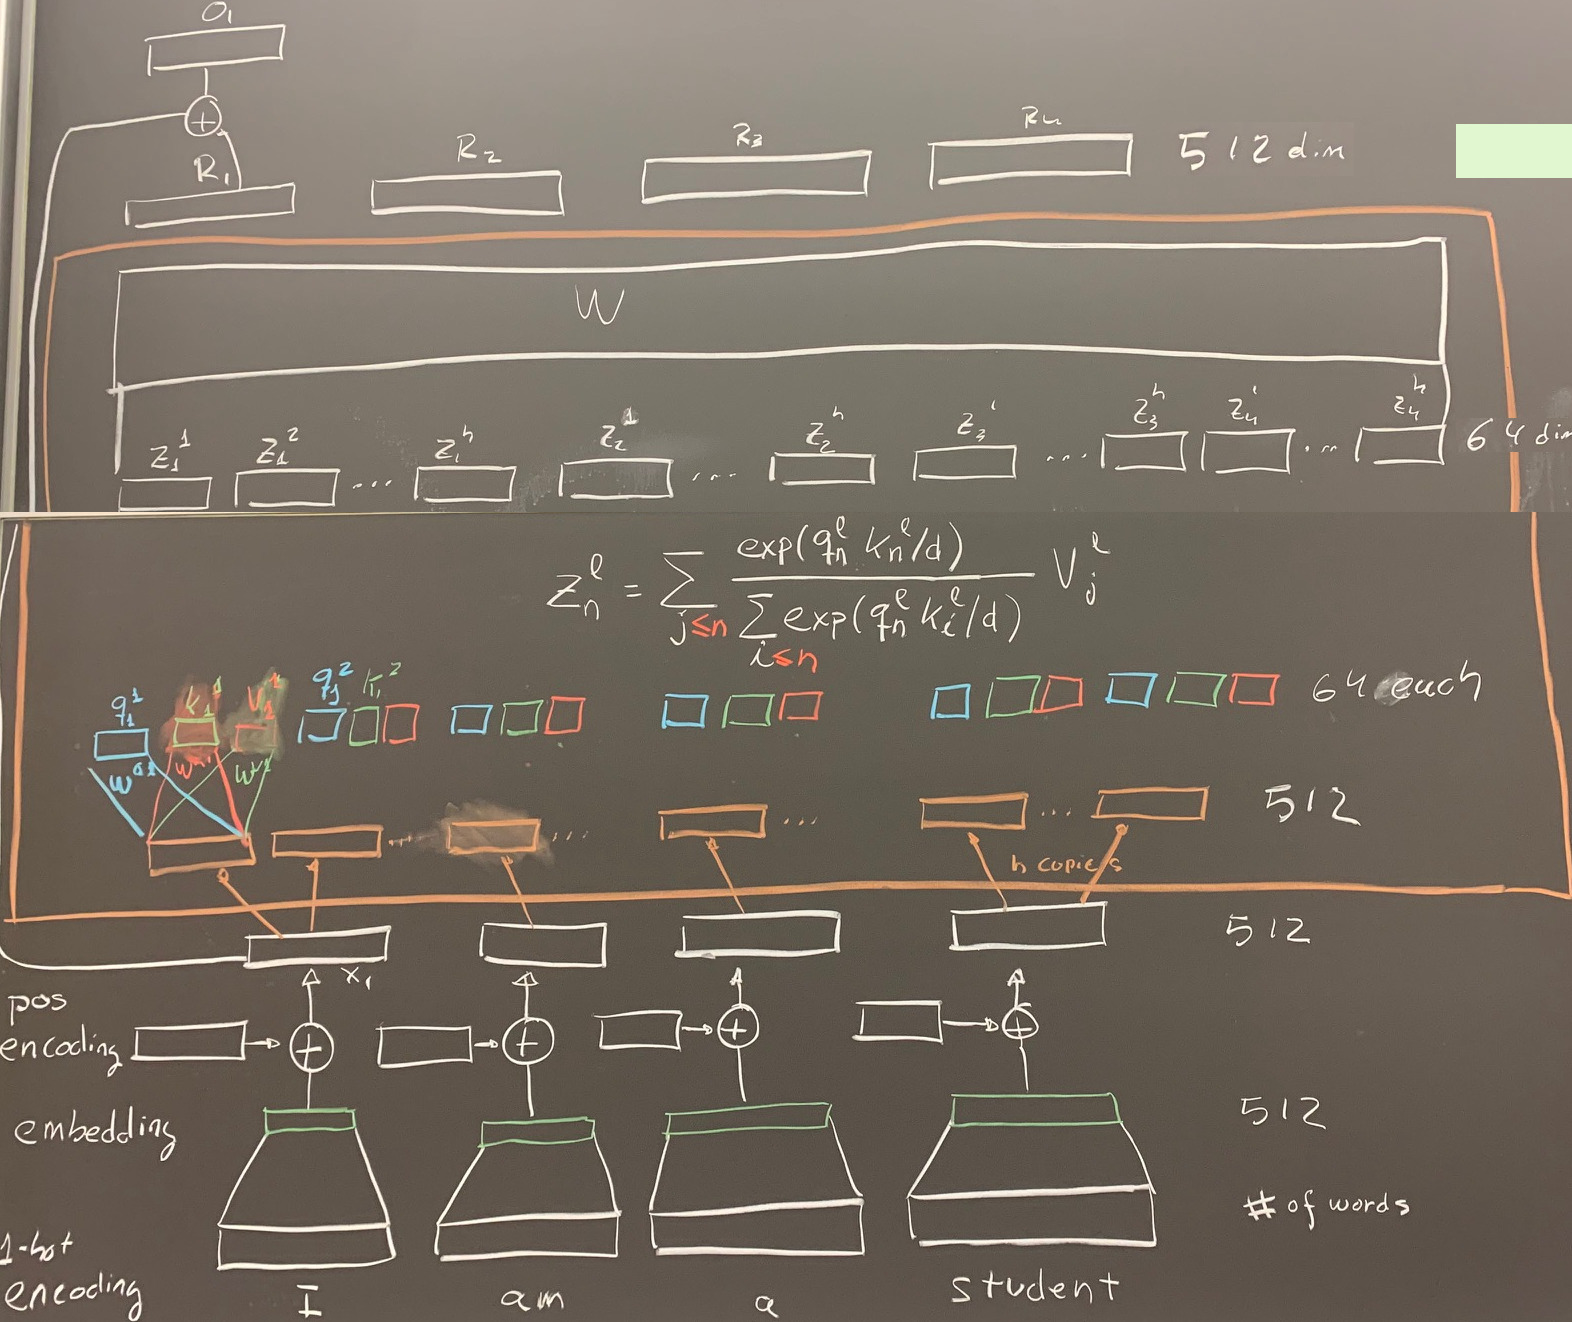 O₁
+
R₁ R₂ R₃ R₄ 512 dim
W
Z₁¹ Z₁² ... Z₁ʰ Z₂¹ ... Z₂ʰ Z₃¹ ... Z₃ʰ Z₄¹ ... Z₄ʰ 64 dim
Zₙˡ = ∑_{j≤n} exp(qₙˡ kₙˡ/d) / ∑_{i≤n} exp(qₙˡ kᵢˡ/d) Vⱼˡ
q₁¹ k₁¹ V₁¹ q₁² k₁² 64 each
W^{Q1} W^{K1} W^{V1}
... ... ... ... 512
h copies
512
x₁
pos
encoding + + + +
embedding 512
# of words
1-hot
encoding
I am a student